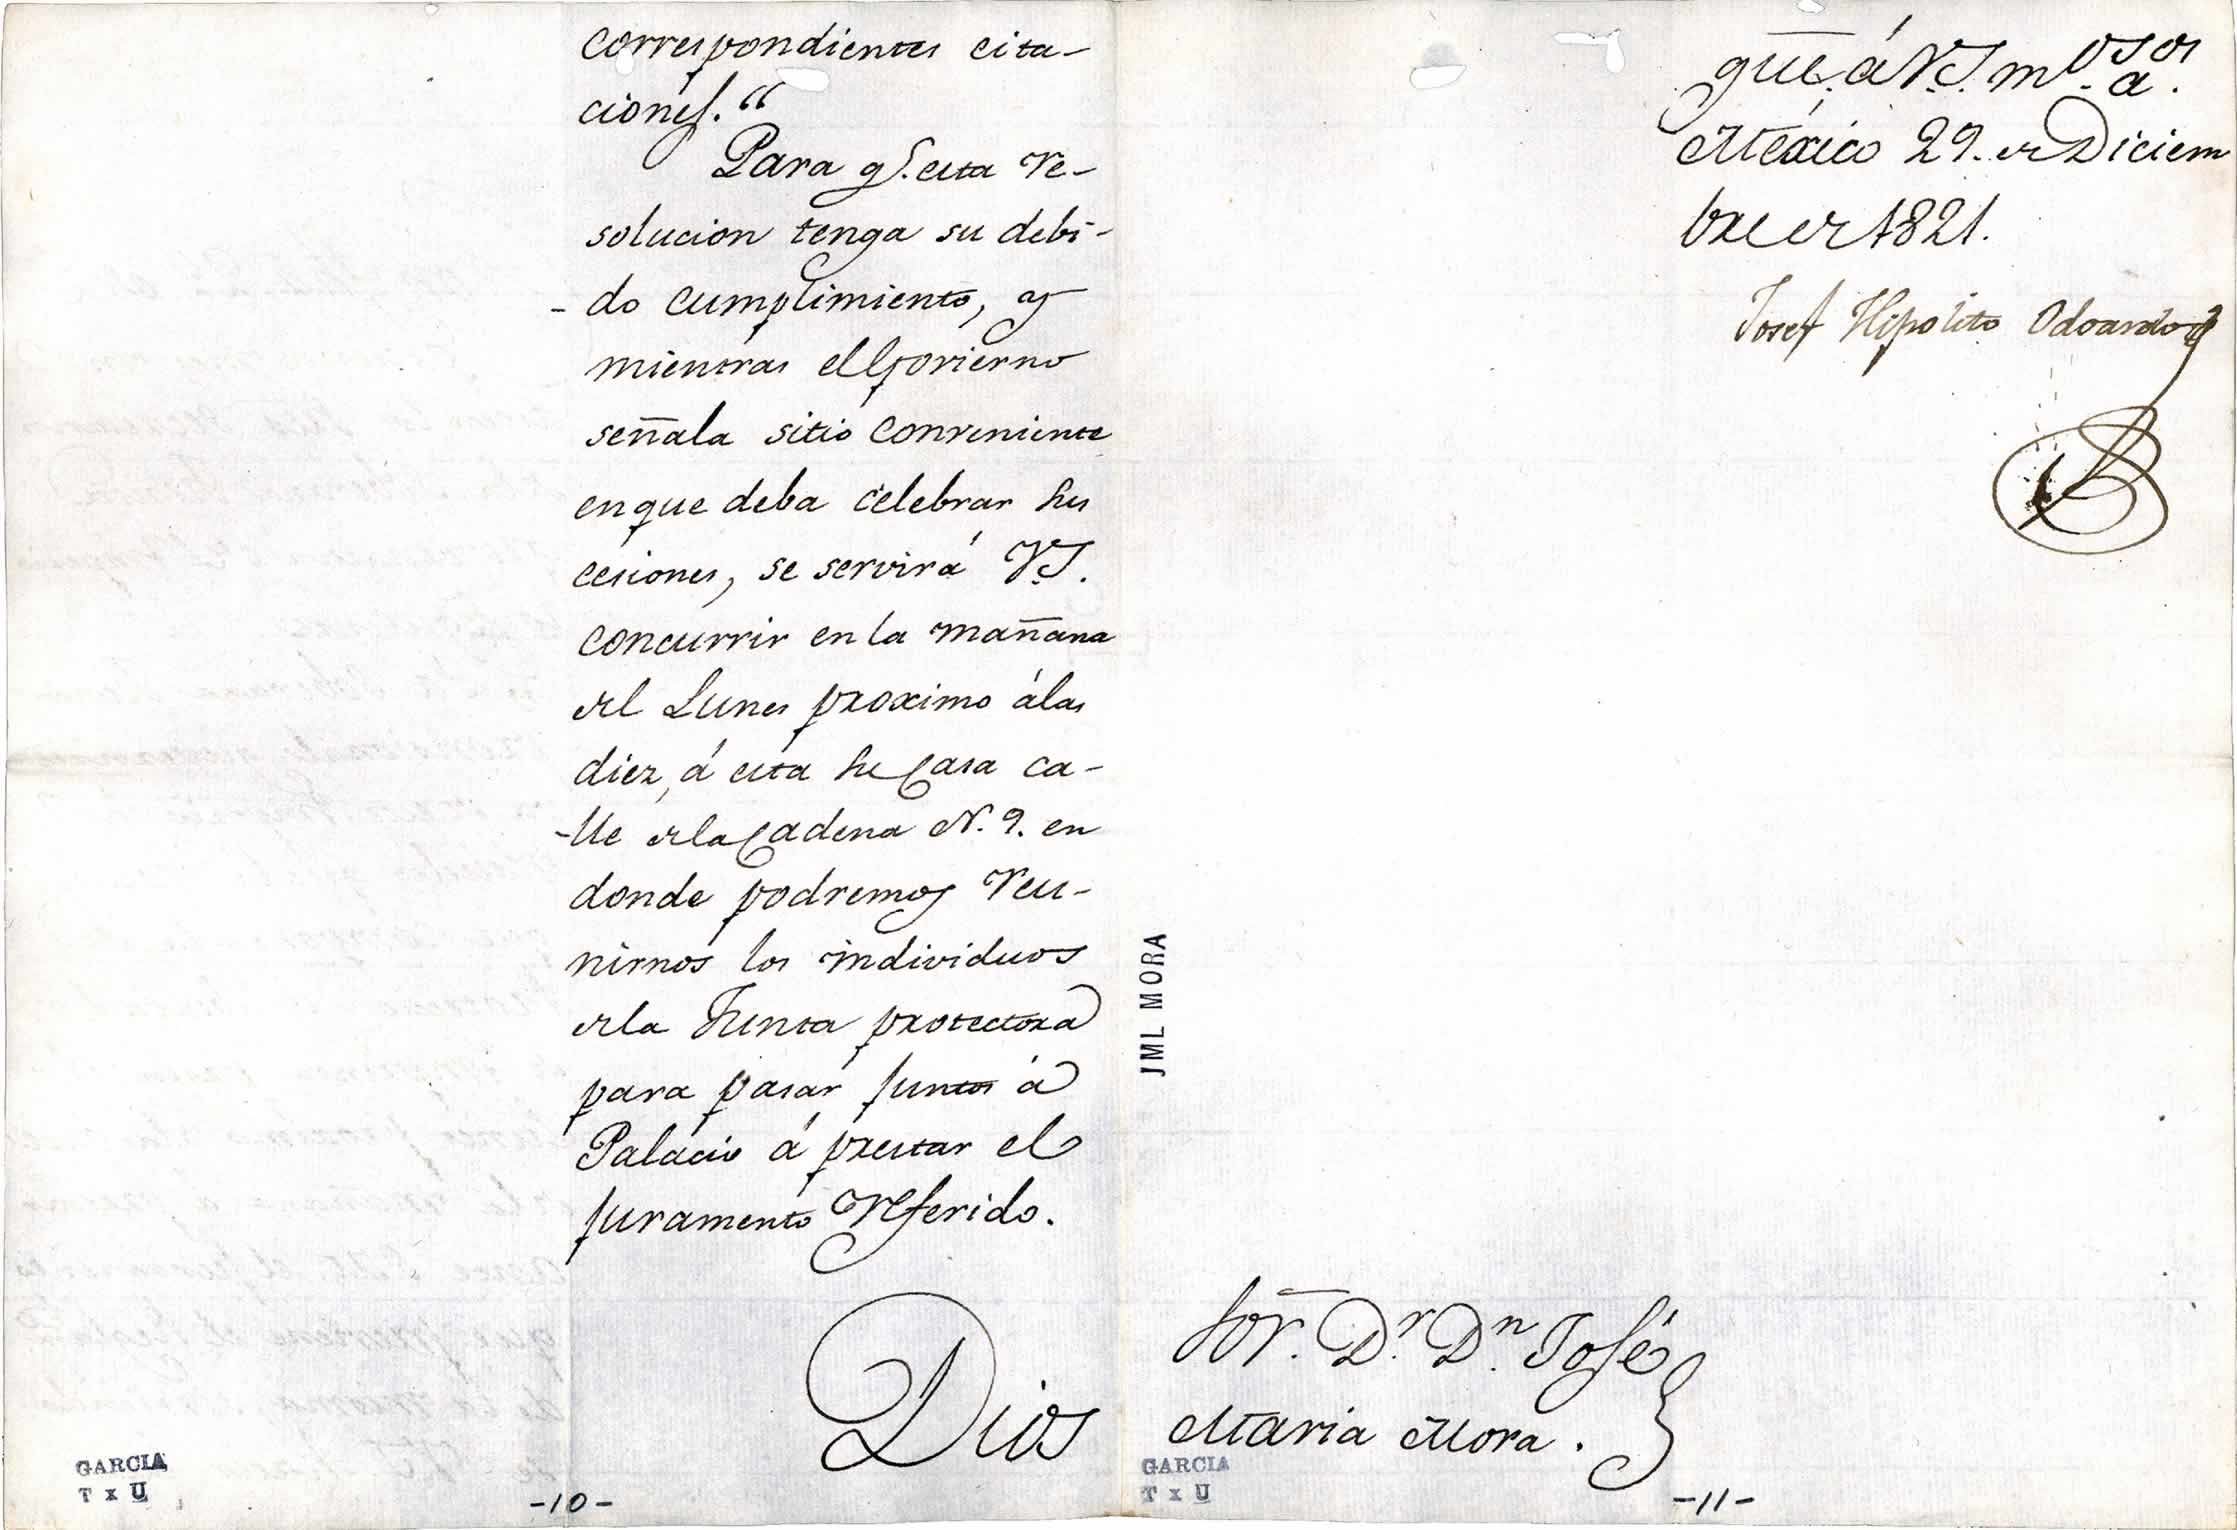 correspondientes cita-
ciones."
Para q.e esta re-
solucion tenga su debi-
-do cumplimiento, y
mientras el Govierno
señala sitio conveniente
en que deba celebrar sus
cesiones, se servirá V.S.
concurrir en la mañana
del Lunes proximo á las
diez, á esta su Casa ca-
-lle de la Cadena N. 9. en
donde podremos reu-
nirnos los individuos
de la Junta protectora
para pasar juntos á
Palacio á prestar el
juramento referido.
Dios
GARCIA
T x U
-10-
gūe. á V.S. m.os a.os
México 29. de Diciem
bre de 1821.
Josef Hipolito Odoardo
JML MORA
Sōr. D.r D.n José
Maria Mora.
GARCIA
T x U
-11-